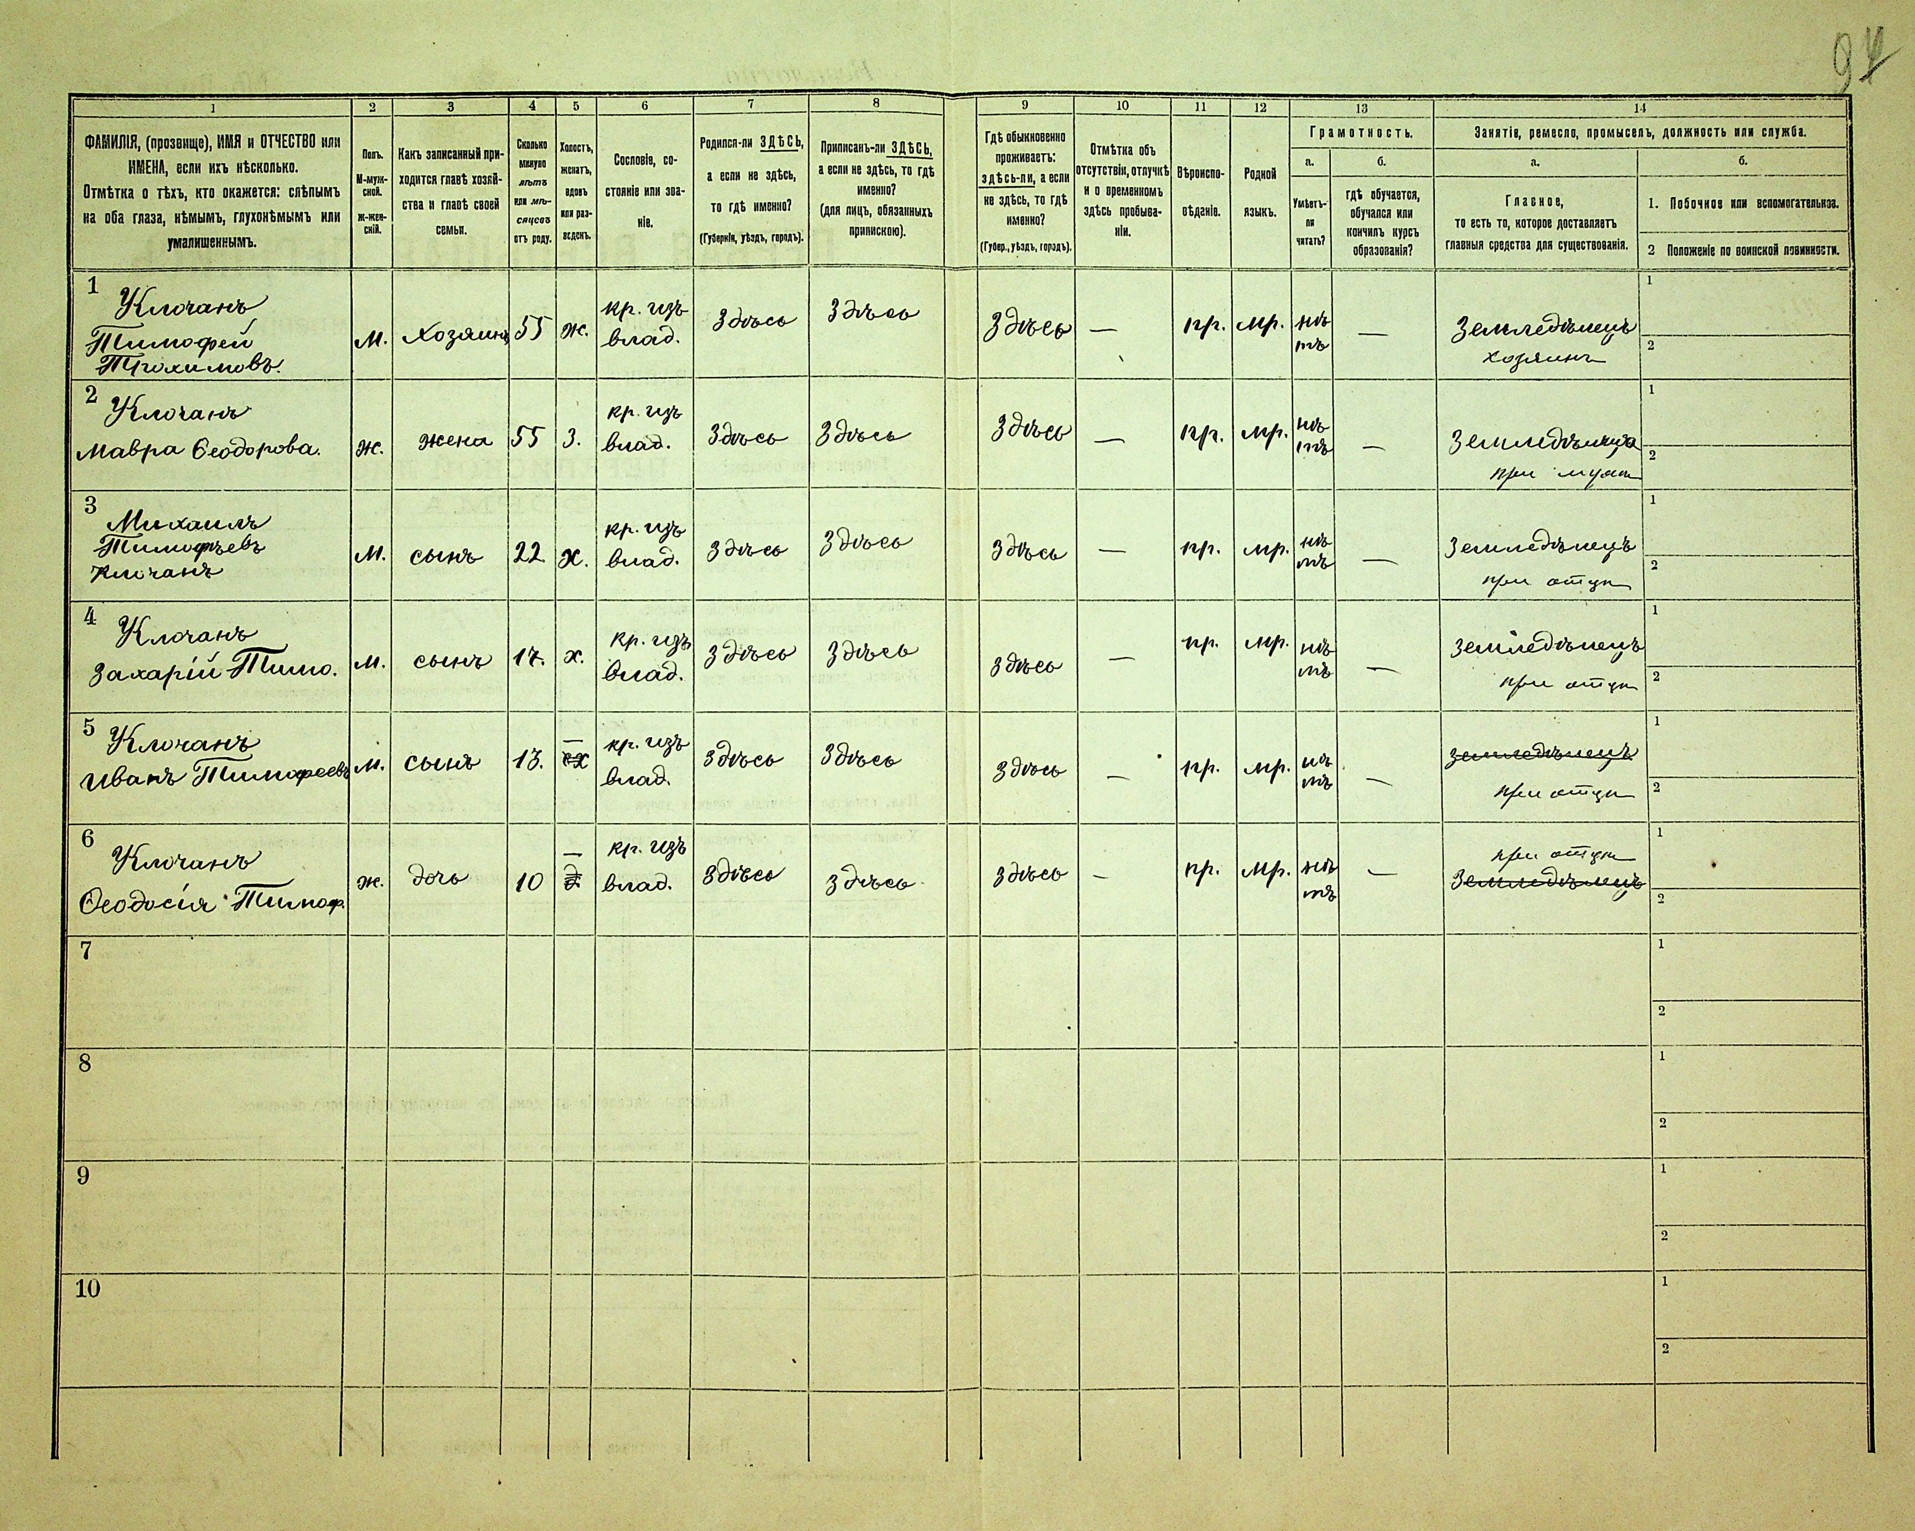 94
1
2
3
4
5
6
7
8
9
10
11
12
13
14
ФАМИЛІЯ, (прозвище), ИМЯ и ОТЧЕСТВО или
ИМЕНА, если ихъ нѣсколько.
Отмѣтка о тѣхъ, кто окажется: слѣпымъ
на оба глаза, нѣмымъ, глухонѣмымъ или
умалишеннымъ.
Полъ.
М-муж-
ской.
Ж-жен-
скій.
Какъ записанный при-
ходится главѣ хозяй-
ства и главѣ своей
семьи.
Сколько
минуло
лѣтъ
или мѣ-
сяцевъ
отъ роду.
Холостъ,
женатъ,
вдовъ
или раз-
веденъ.
Сословіе, со-
стояніе или зва-
ніе.
Родился-ли ЗДѢСЬ,
а если не здѣсь,
то гдѣ именно?
(Губернія, уѣздъ, городъ).
Приписанъ-ли ЗДѢСЬ,
а если не здѣсь, то гдѣ
именно?
(для лицъ, обязанныхъ
припискою).
Гдѣ обыкновенно
проживаетъ:
здѣсь-ли, а если
не здѣсь, то гдѣ
именно?
(Губер., уѣздъ, городъ).
Отмѣтка объ
отсутствіи, отлучкѣ
и о временномъ
здѣсь пребыва-
ніи.
Вѣроиспо-
вѣданіе.
Родной
языкъ.
Грамотность.
а.
Умѣетъ-
ли
читать?
б.
гдѣ обучается,
обучался или
кончилъ курсъ
образованія?
Занятіе, ремесло, промыселъ, должность или служба.
а.
Главное,
то есть то, которое доставляетъ
главныя средства для существованія.
б.
1. Побочное или вспомогательное.
2 Положеніе по воинской повинности.
1
Клочанъ
Тимофей
Трохимовъ.
м.
Хозяинъ
55
ж.
кр. изъ
влад.
Здѣсь
Здѣсь
Здѣсь
—
пр.
мр.
нѣ
тъ
—
Земледѣлецъ
хозяинъ
1
2
2
Клочанъ
Мавра Ѳеодорова.
ж.
жена
55
з.
кр. изъ
влад.
Здѣсь
Здѣсь
Здѣсь
—
пр.
мр.
нѣ
тъ
—
Земледѣлица
при муж
1
2
3
Михаилъ
Тимофѣевъ
Клочанъ
м.
сынъ
22
х.
кр. изъ
влад.
Здѣсь
Здѣсь
Здѣсь
—
пр.
мр.
нѣ
тъ
—
Земледѣлецъ
при отцѣ
1
2
4
Клочанъ
Захарій Тимо.
м.
сынъ
17.
х.
кр. изъ
влад.
Здѣсь
Здѣсь
Здѣсь
—
пр.
мр.
нѣ
тъ
—
Земледѣлецъ
при отцѣ
1
2
5
Клочанъ
Иванъ Тимофеевъ
м.
сынъ
13.
—
х
кр. изъ
влад.
Здѣсь
Здѣсь
Здѣсь
—
пр.
мр.
нѣ
тъ
—
Земледѣлецъ
при отцѣ
1
2
6
Клочанъ
Ѳеодосія Тимоф.
ж.
дочь
10
—
д.
кр. изъ
влад.
Здѣсь
Здѣсь
Здѣсь
—
пр.
мр.
нѣ
тъ
—
при отцѣ
Земледѣлецъ
1
2
7
1
2
8
1
2
9
1
2
10
1
2